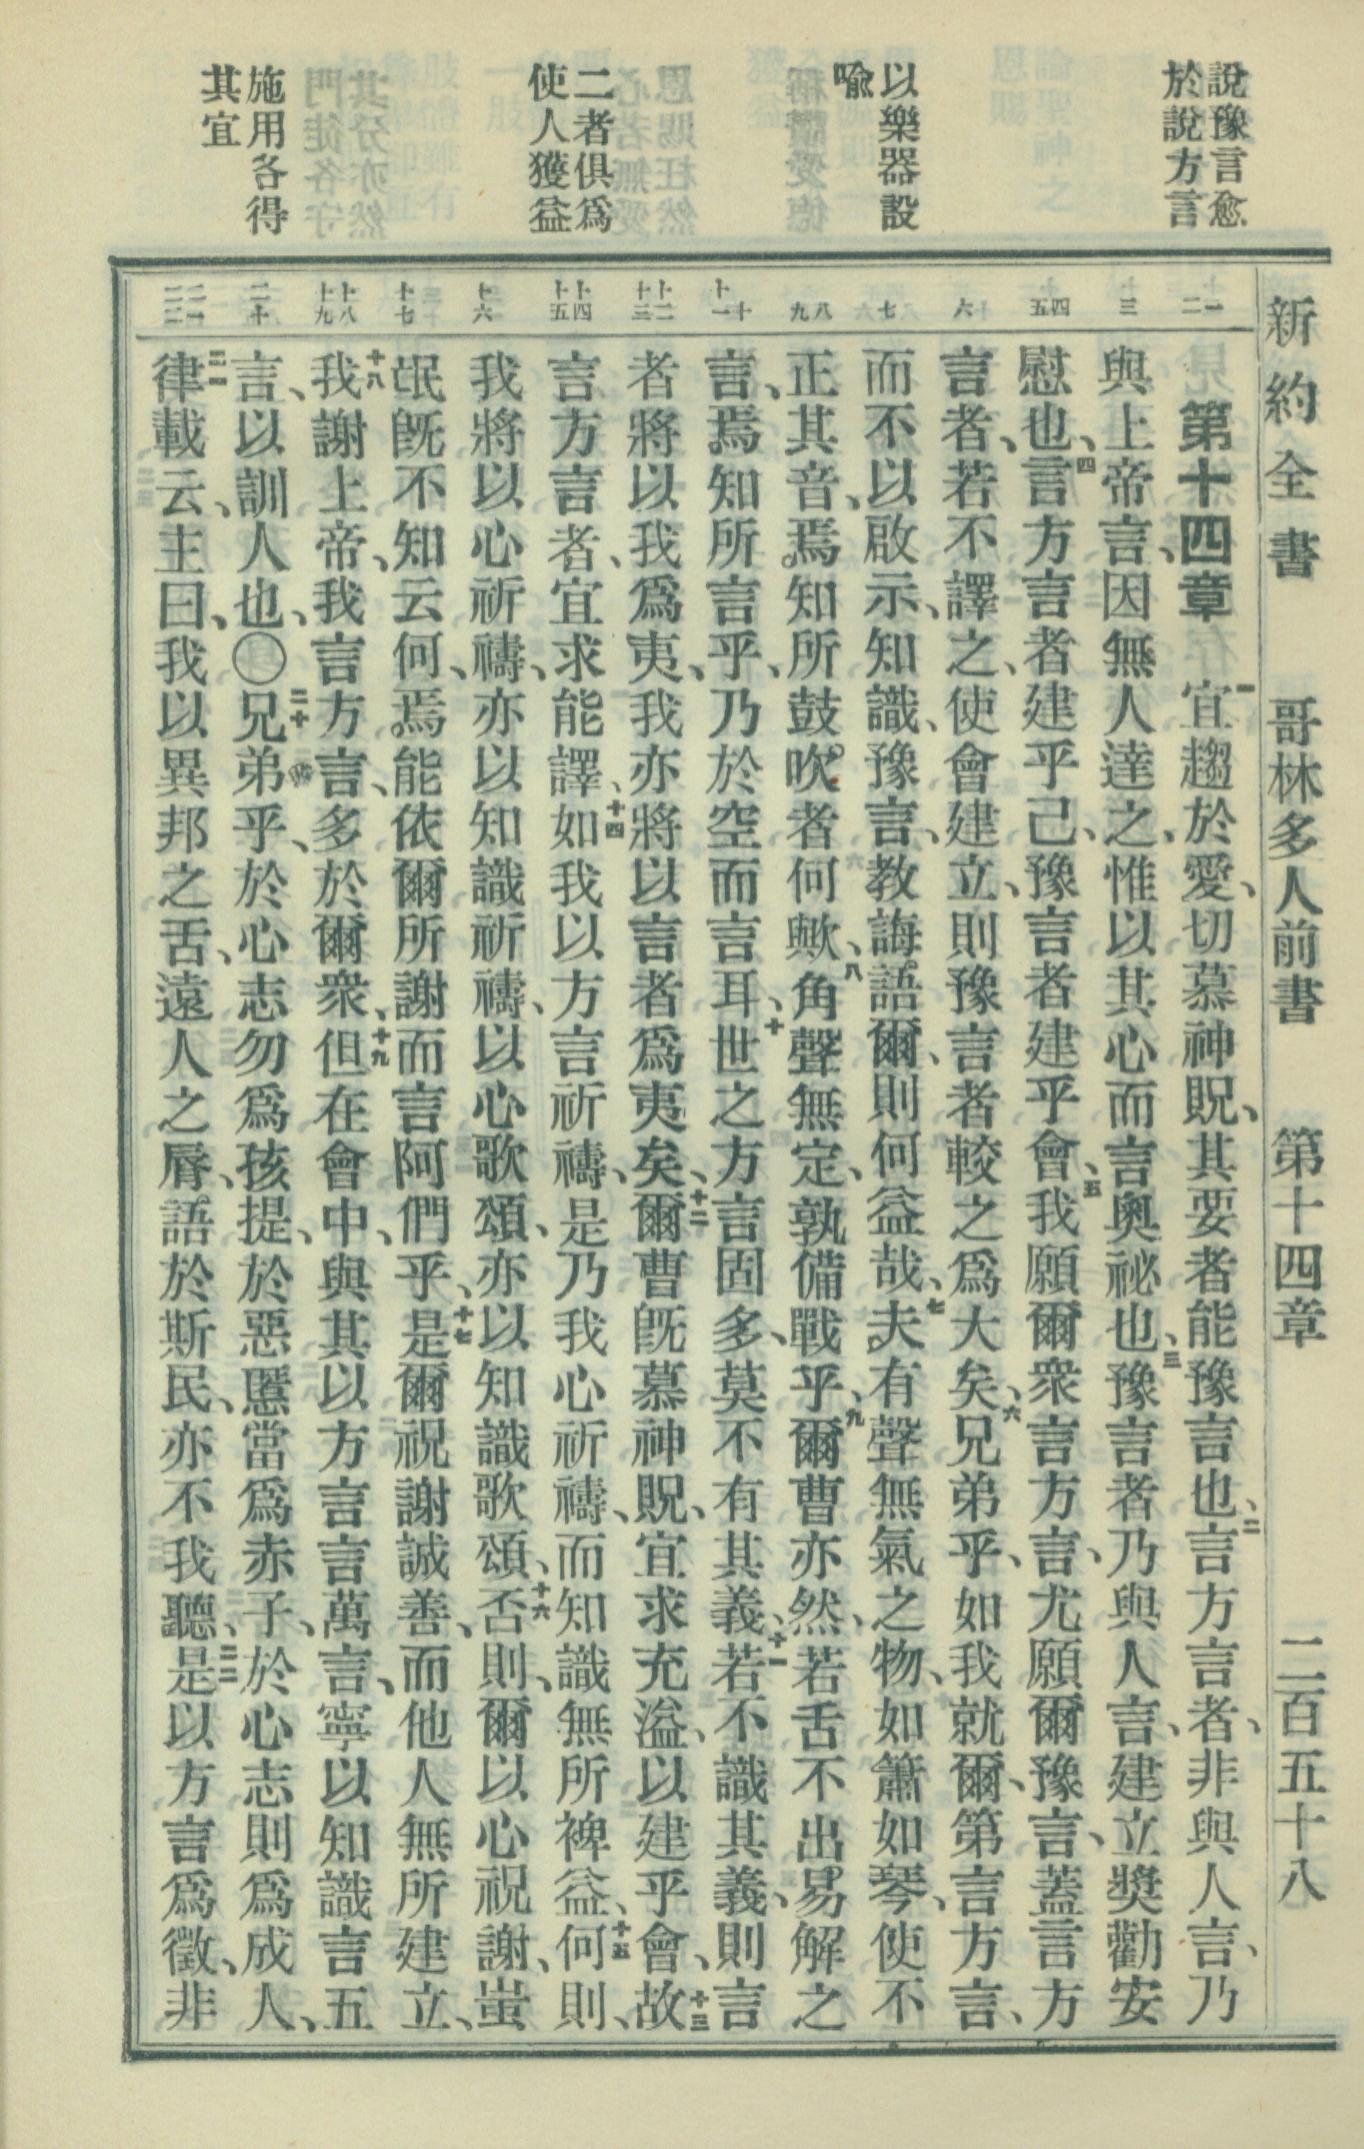 新約全書 哥林多人前書 第十四章 二百五十八
說豫言愈
於說方言
以樂器設
喩
二者俱爲
使人獲益
施用各得
其宜
一 二 三 四 五 六 七 八 九 十 十一 十二 十三 十四 十五 十六 十七 十八 十九 二十 二一 二二
第十四章 一宜趨於愛、切慕神貺、其要者能豫言也、二言方言者、非與人言、乃
與上帝言、因無人達之、惟以其心而言奧祕也、三豫言者、乃與人言、建立獎勸安
慰也、四言方言者建乎己、豫言者建乎會、五我願爾衆言方言、尤願爾豫言、蓋言方
言者、若不譯之、使會建立、則豫言者較之爲大矣、六兄弟乎、如我就爾、第言方言、
而不以啟示、知識、豫言、教誨、語爾、則何益哉、七夫有聲無氣之物、如簫如琴、使不
正其音、焉知所鼓吹者何歟、八角聲無定、孰備戰乎、九爾曹亦然、若舌不出易解之
言、焉知所言乎、乃於空而言耳、十世之方言固多、莫不有其義、十一若不識其義、則言
者將以我爲夷、我亦將以言者爲夷矣、十二爾曹旣慕神貺、宜求充溢、以建乎會、十三故
言方言者、宜求能譯、十四如我以方言祈禱、是乃我心祈禱、而知識無所裨益、十五何則、
我將以心祈禱、亦以知識祈禱、以心歌頌、亦以知識歌頌、十六否則、爾以心祝謝、蚩
氓旣不知云何、焉能依爾所謝而言阿們乎、十七是爾祝謝誠善、而他人無所建立、
十八我謝上帝、我言方言、多於爾衆、十九但在會中、與其以方言言萬言、寧以知識言五
言、以訓人也、〇二十兄弟乎、於心志勿爲孩提、於惡慝當爲赤子、於心志則爲成人、
二一律載云、主曰、我以異邦之舌、遠人之脣、語於斯民、亦不我聽、二二是以方言爲徵、非